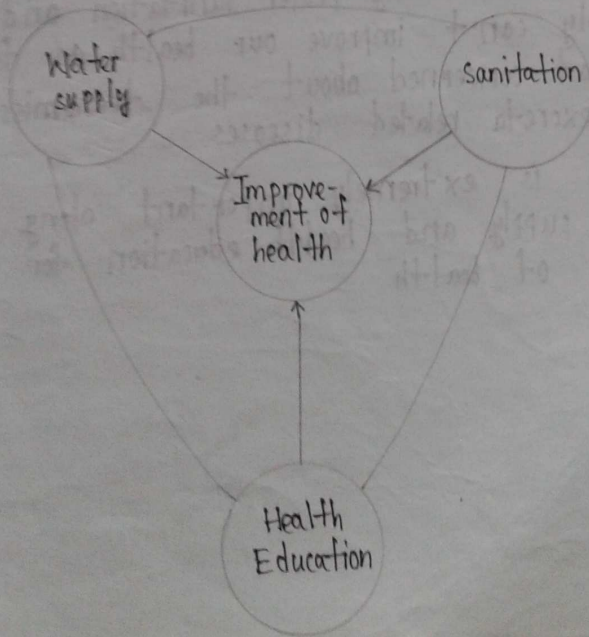 Water
supply
sanitation
Improve-
ment of
health
Health
Education